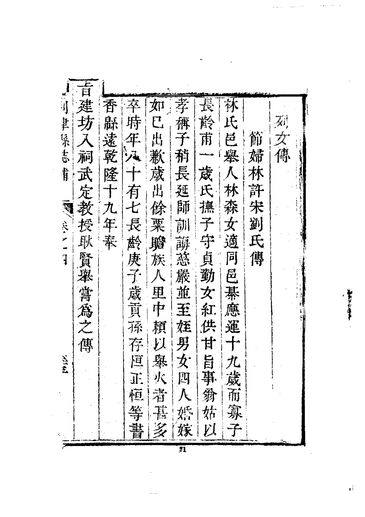 列女傳
節婦林許宋劉氏傳
林氏邑舉人林森女適同邑綦應運十九歲而寡子
長齡甫一歲氏撫子守貞勤女紅供甘旨事翁姑以
孝稱子稍長延師訓誨慈嚴並至姪男女四人婚嫁
如己出歉歲出餘粟贍族人里中賴以舉火者甚多
卒時年八十有七長齡庚子歲貢孫存恒正恒等書
香縣遠乾隆十九年奉
旨建坊入祠武定教授耿賢舉嘗為之傳
利津縣志補
卷之四
71